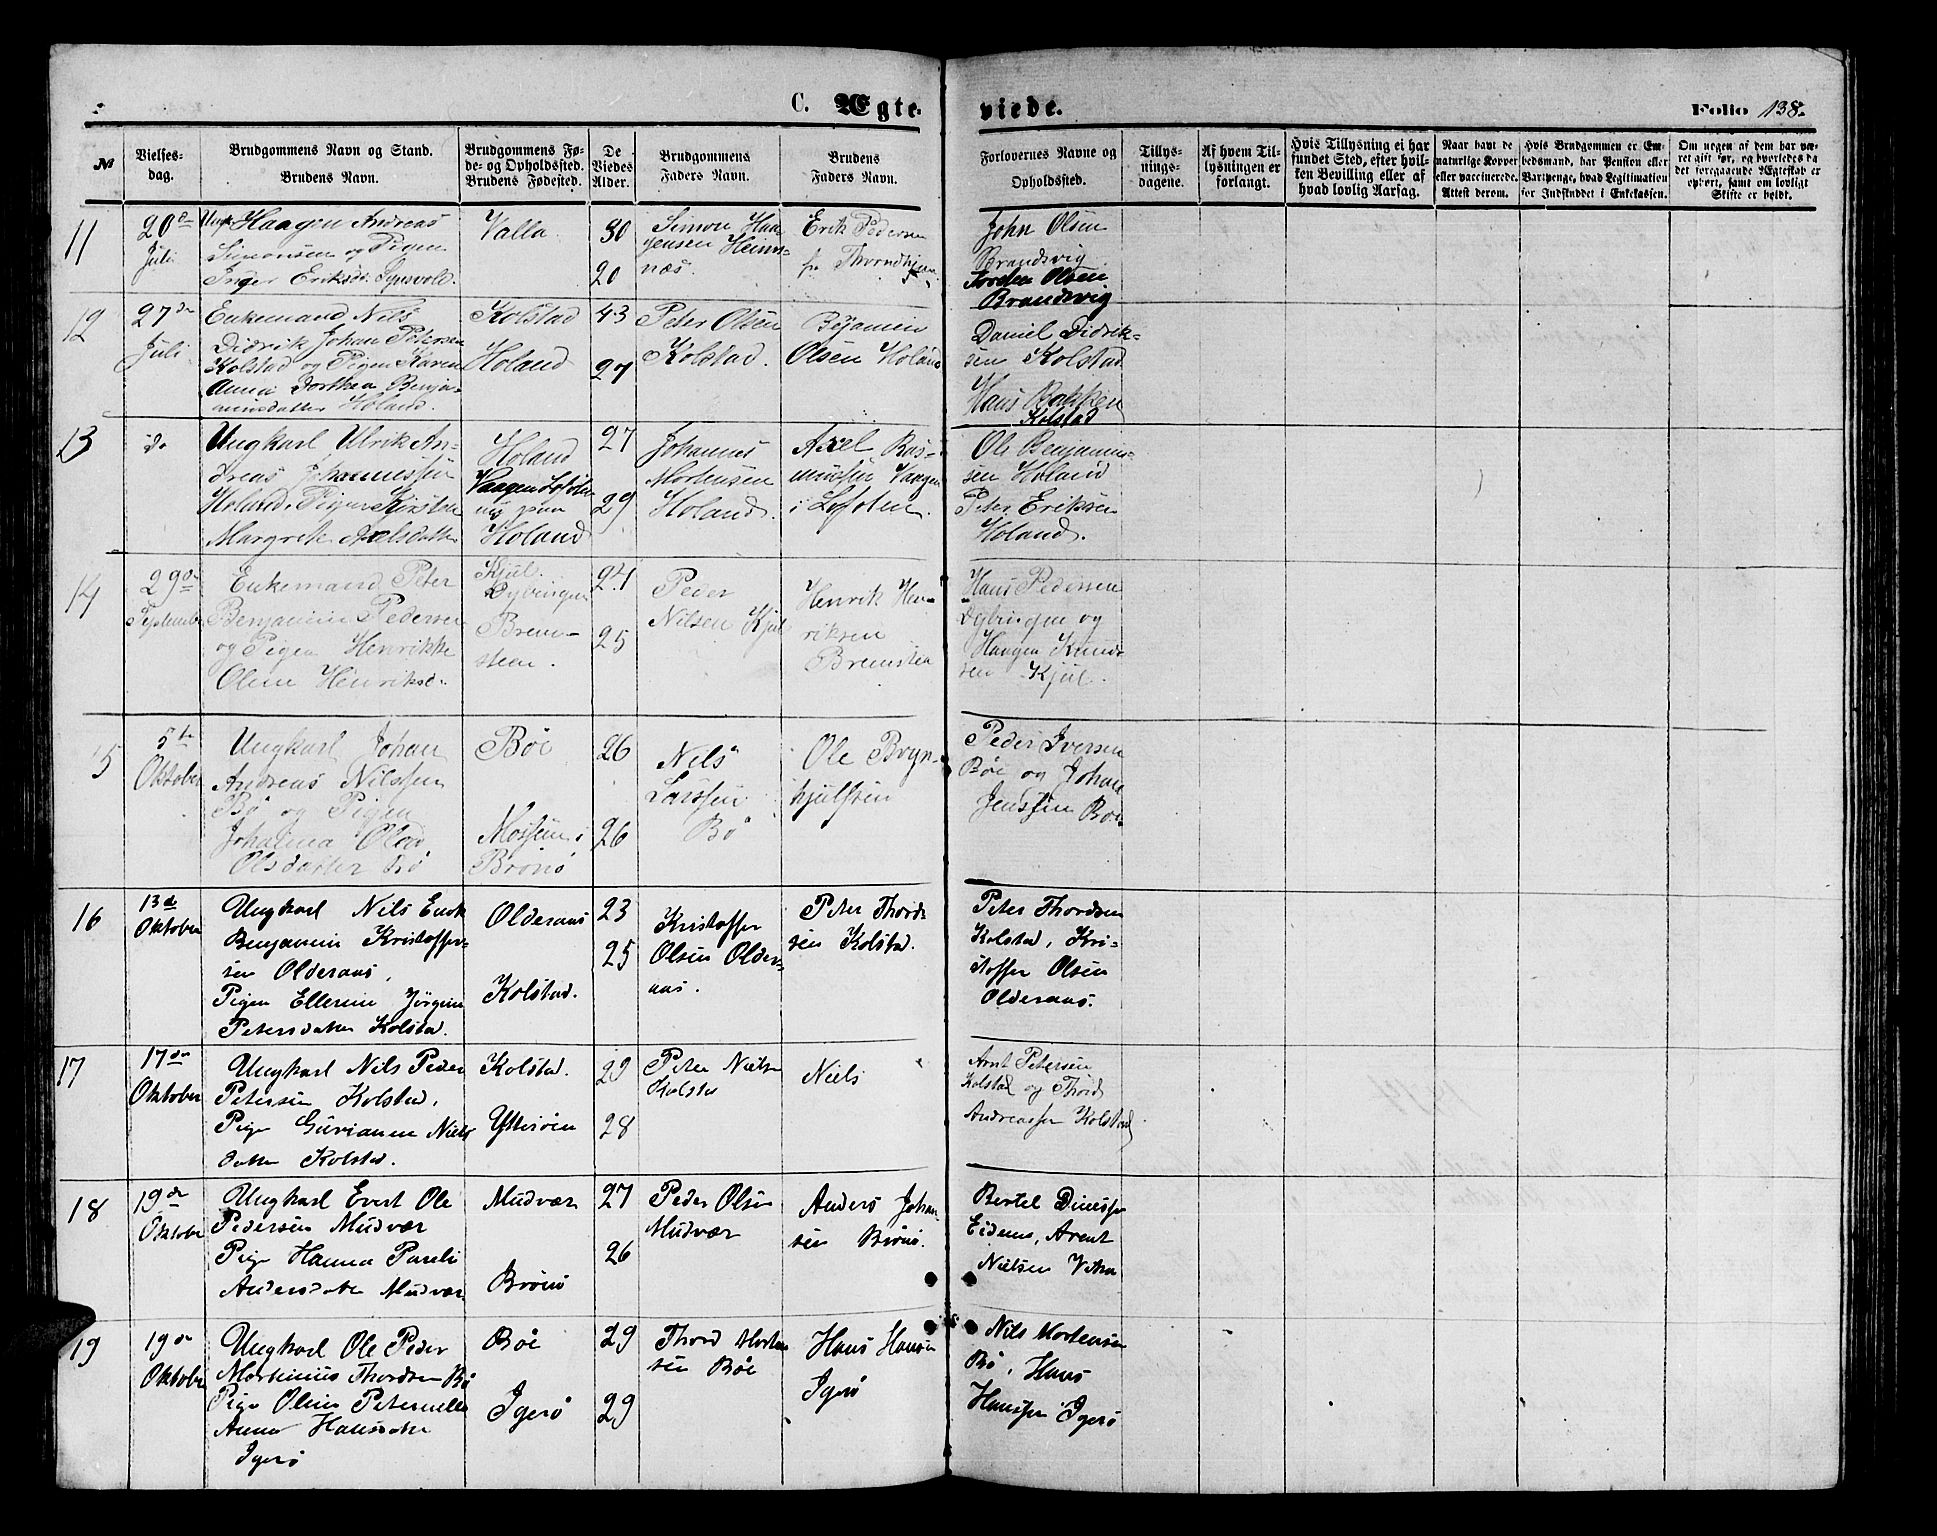 C. Ægte
viede.
Folio 138.
№
Vielses-
dag.
Brudgommens Navn og Stand.
Brudens Navn.
Brudgommens Fø-
de- og Opholdssted.
Brudens Fødested.
De
Viedes
Alder.
Brudgommens
Faders Navn.
Brudens
Faders Navn.
Forlovernes Navne og
Opholdssted.
Tillys-
nings-
dagene.
Af hvem Til-
lysningen er
forlangt.
Hvis Tillysning ei har
fundet Sted, efter hvil-
ken Bevilling eller af
hvad lovlig Aarsag.
Naar havt de
naturlige Kopper
eller vaccinerede.
Attest derom.
Hvis Brudgommen er En-
kebesmand, har Pension eller
Vartpenge, hvad Legitimation
for Indskuddet i Enkekassen.
Om nogen af dem har væ-
ret gift før, og hvorledes da
det foregaaende Ægteskab er
ophørt, samt om lovligt
Skifte er holdt.
11
20de
Juli
Ungk Haagen Andreas
Simonsen og Pigen
Inger Eriksdr.
Valla
30
20
Simon Haa-
gensen Heims-
næs.
Erik Pedersen
fr Throndhjem
John Olsen
Brandsvig
Olsen
Brandsvig
12
27de
Juli
Enkemand Nils
Didrik Johan Petersen
Kolstad og Pigen Karen
Anna Dorthea Benja-
minsdatter Holand.
Kolstad
Holand
43
27
Peter Olsen
Kolstad.
Benjamin
Olsen Holand
Daniel Didrik-
sen Kolstad
Hans Bakken
Kolstad
13
do
Ungkarl Ulrik An-
dreas Johannessen
Holand. Pigen Kirsten
Margrete Axelsdatter
Holand
Vaagen Lofoten
nu paa
Holand
27
29
Johannes
Mortensen
Holand.
Axel Ras-
mussen Vaagen
i Lofoten.
Ole Benjamin-
sen Holand
Peter Eriksen
Holand.
14
29de
September
Enkemand Peter
Benjamin Pedersen
og Pigen Henrikke
Oline Henriksd.
Kjul.
Dybingen
Brem-
steen.
24
25
Peder
Nilsen Kjul
Henrik Hen-
riksen
Bremsten
Hans Pedersen
Dybingen og
Haagen Knud-
sen Kjul.
15
5te
Oktober
Ungkarl Johan
Andreas Nilssen
Bø og Pigen
Johanna
Olsdatter Bø
Bøe
Mossem i
Brønø
26
26
Nils
Larssen
Bø
Ole Bryn-
hjulfsen
Peder Iversen
Bøe og Johan
Jenssen Bøe
16
13de
Oktober
Ungkarl Nils Enok
Benjamin Kristoffer-
sen Olderaas,
Pigen Ellerine Jørgine
Petersdatter Kolstad.
Olderaas
Kolstad.
23
25
Kristoffer
Olsen Older-
aas.
Peter Thord-
sen Kolstad.
Peter Thordsen
Kolstad, Kri-
stoffer Olsen
Olderaas.
17
17de
Oktober
Ungkarl Nils Peder
Petersen Kolstad,
Pige Gurianne Niels
datter Kolstad.
Kolstad.
Ytterøen
29
28
Peter Nielsen
Kolstad
Niels
Arnt Petersen
Kolstad og Thord
Andreassen Kolstad
18
19de
Oktober
Ungkarl Evert Ole
Pedersen Mudvær
Pige Hanna Pareli
Andersdatter Mudvær
Mudvær
Brønø
27
26
Peder Olsen
Mudvær
Anders Johan-
sen Brønø.
Bertel Dinessen
Eidem, Arent
Nielsen
19
19de
Oktober
Ungkarl Ole Peder
Martinius Thordsen Bø
Pige Oline Peternelle
Anna Hansdatter
Igerø
Bøe
Igerø
29
29
Thord Morten-
sen Bøe
Hans Hansen
Igerø
Nils Mortensen
Bø, Hans
Hanssen Igerø